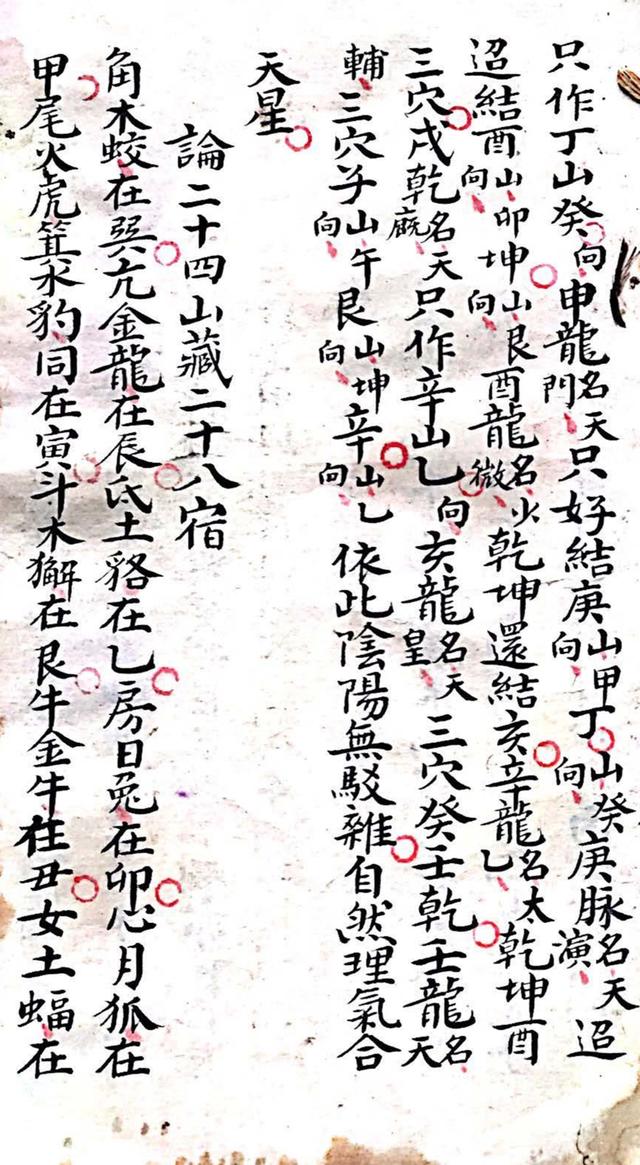 只作丁山癸向申龍名天門只好結庚山甲向丁山癸向庚脉名天演迢
迢結酉山卯向坤山艮向酉龍名火微乾坤還結亥辛龍名太乙乾坤酉
三穴戌乾名天廐只作辛山乙向亥龍名天皇三穴癸壬乾壬龍名天
輔三穴子山午向艮山坤向辛山乙向依此陰陽無駁雜自然理氣合
天星
論二十四山藏二十八宿
角木蛟在巽亢金龍在辰氐土貉在乙房日兔在卯心月狐在
甲尾火虎箕水豹同在寅斗木獬在艮牛金牛在丑女土蝠在